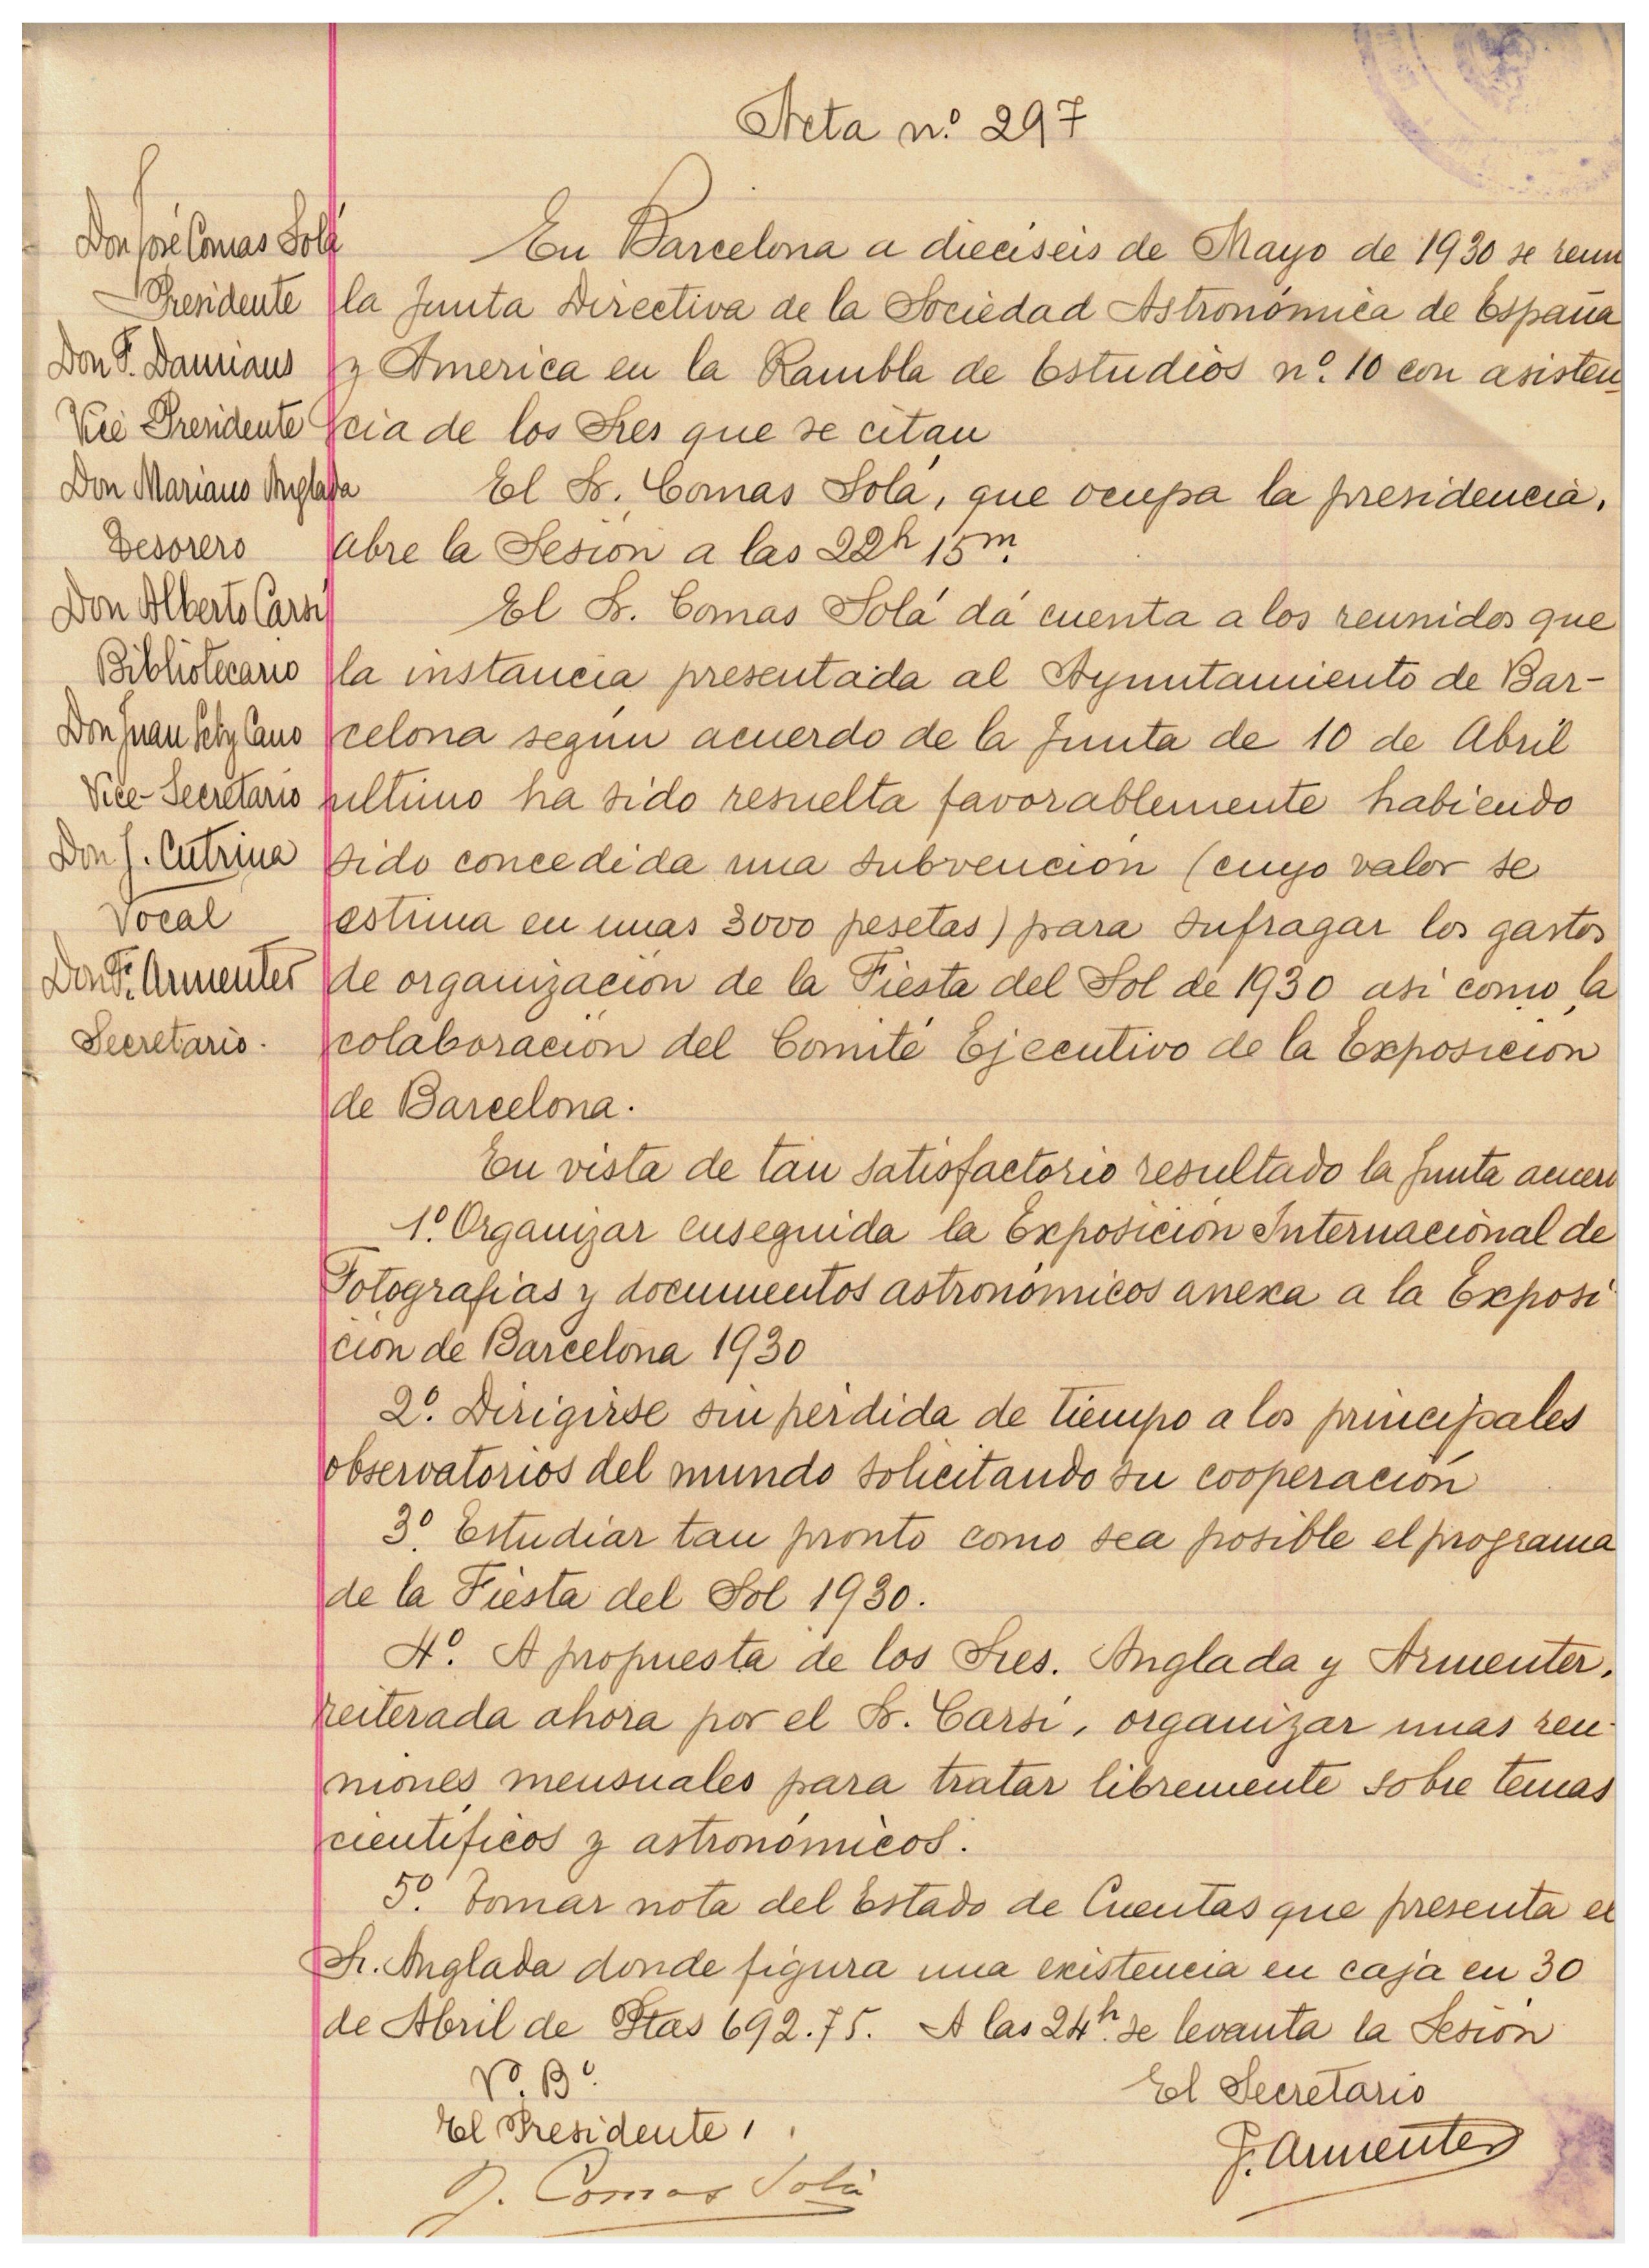 Acta n.º 297
Don José Comas Solá
Presidente
Don F. Damians
Vice Presidente
Don Mariano Anglada
Tesorero
Don Alberto Carsí
Bibliotecario
Don Juan y Cano
Vice-Secretario
Don J. Cutrina
Vocal
Don F. Armenter
Secretario.
En Barcelona a dieciseis de Mayo de 1930 se reun
la Junta Directiva de la Sociedad Astronómica de España
y America en la Rambla de Estudios nº. 10 con asisten
cia de los Sres que se citan
El Sr. Comas Solá, que ocupa la presidencia,
abre la Sesión a las 22h 15m.
El Sr. Comas Solá dá cuenta a los reunidos que
la instancia presentada al Ayuntamiento de Bar-
celona según acuerdo de la Junta de 10 de Abril
ultimo ha sido resuelta favorablemente habiendo
sido concedida una subvención (cuyo valor se
estima en unas 3000 pesetas) para sufragar los gastos
de organización de la Fiesta del Sol de 1930 así como la
colaboración del Comité Ejecutivo de la Exposición
de Barcelona.
En vista de tan satisfactorio resultado la Junta acuer
1º. Organizar enseguida la Exposición Internacional de
Fotografias y documentos astronómicos anexa a la Exposi
ción de Barcelona 1930
2º. Dirigirse sin pérdida de tiempo a los principales
observatorios del mundo solicitando su cooperación
3º. Estudiar tan pronto como sea posible el programa
de la Fiesta del Sol 1930.
4º. A propuesta de los Sres. Anglada y Armenter,
reiterada ahora por el Sr. Carsí, organizar unas reu-
niones mensuales para tratar libremente sobre temas
científicos y astronómicos.
5º. Tomar nota del Estado de Cuentas que presenta el
Sr. Anglada donde figura una existencia en caja en 30
de Abril de Ptas 692.75. A las 24h. se levanta la Sesión
Vº. Bº.
El Presidente,
J. Comas Solá
El Secretario
F. Armenter